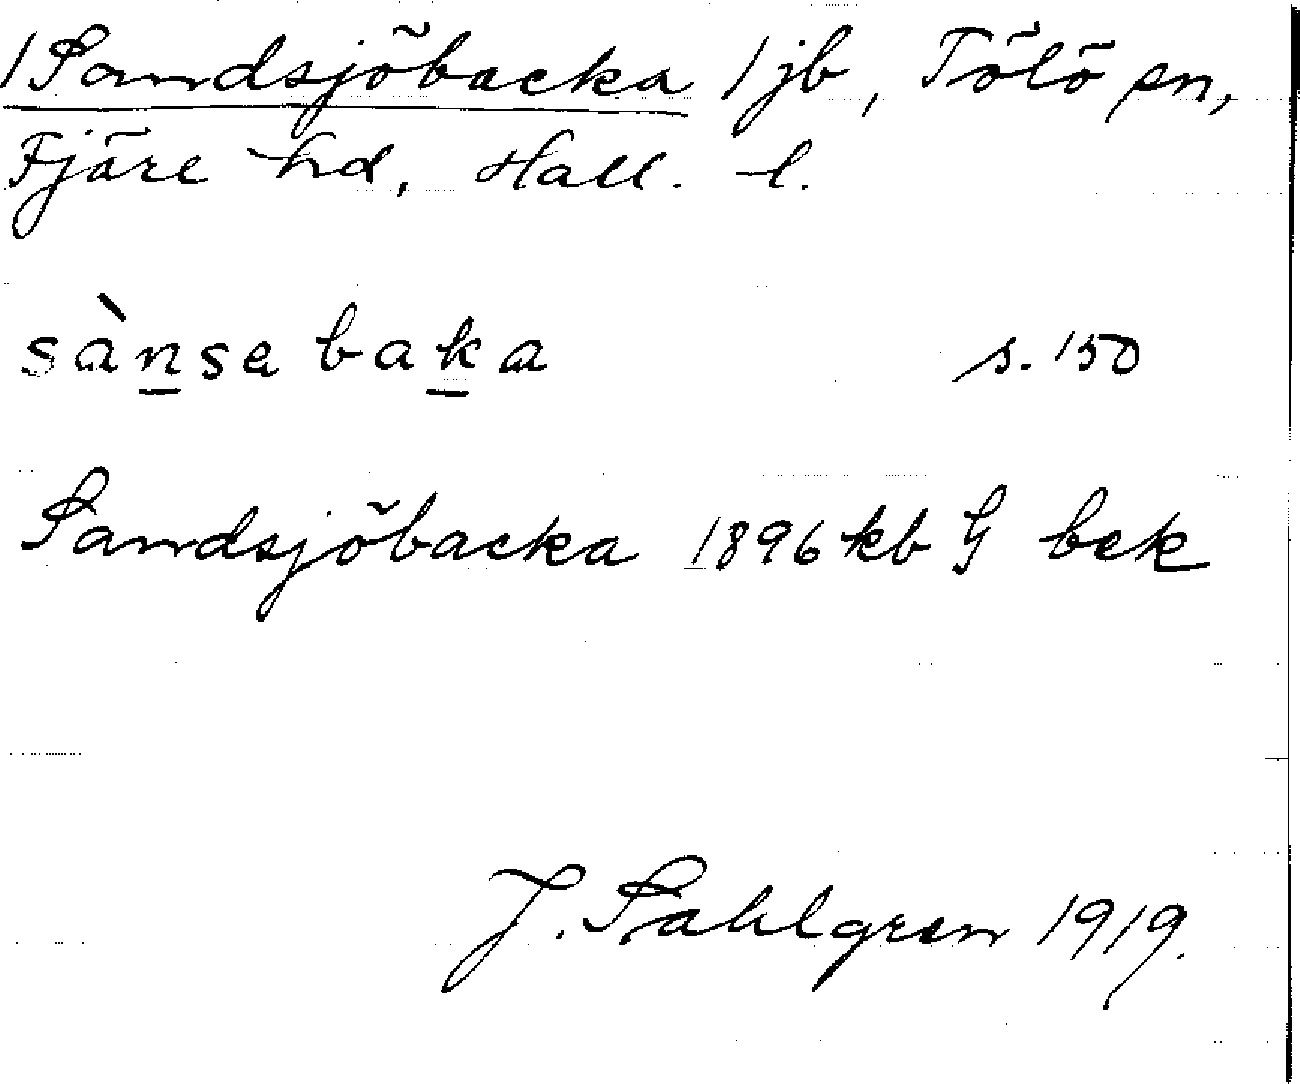 /Sandsjöbacka / jb, Tölö sn,
Fjäre hd, Hall. l.
sànse baka s. 150
Sandsjöbacka 1896 kb G bek
J. Sahlgren 1919.